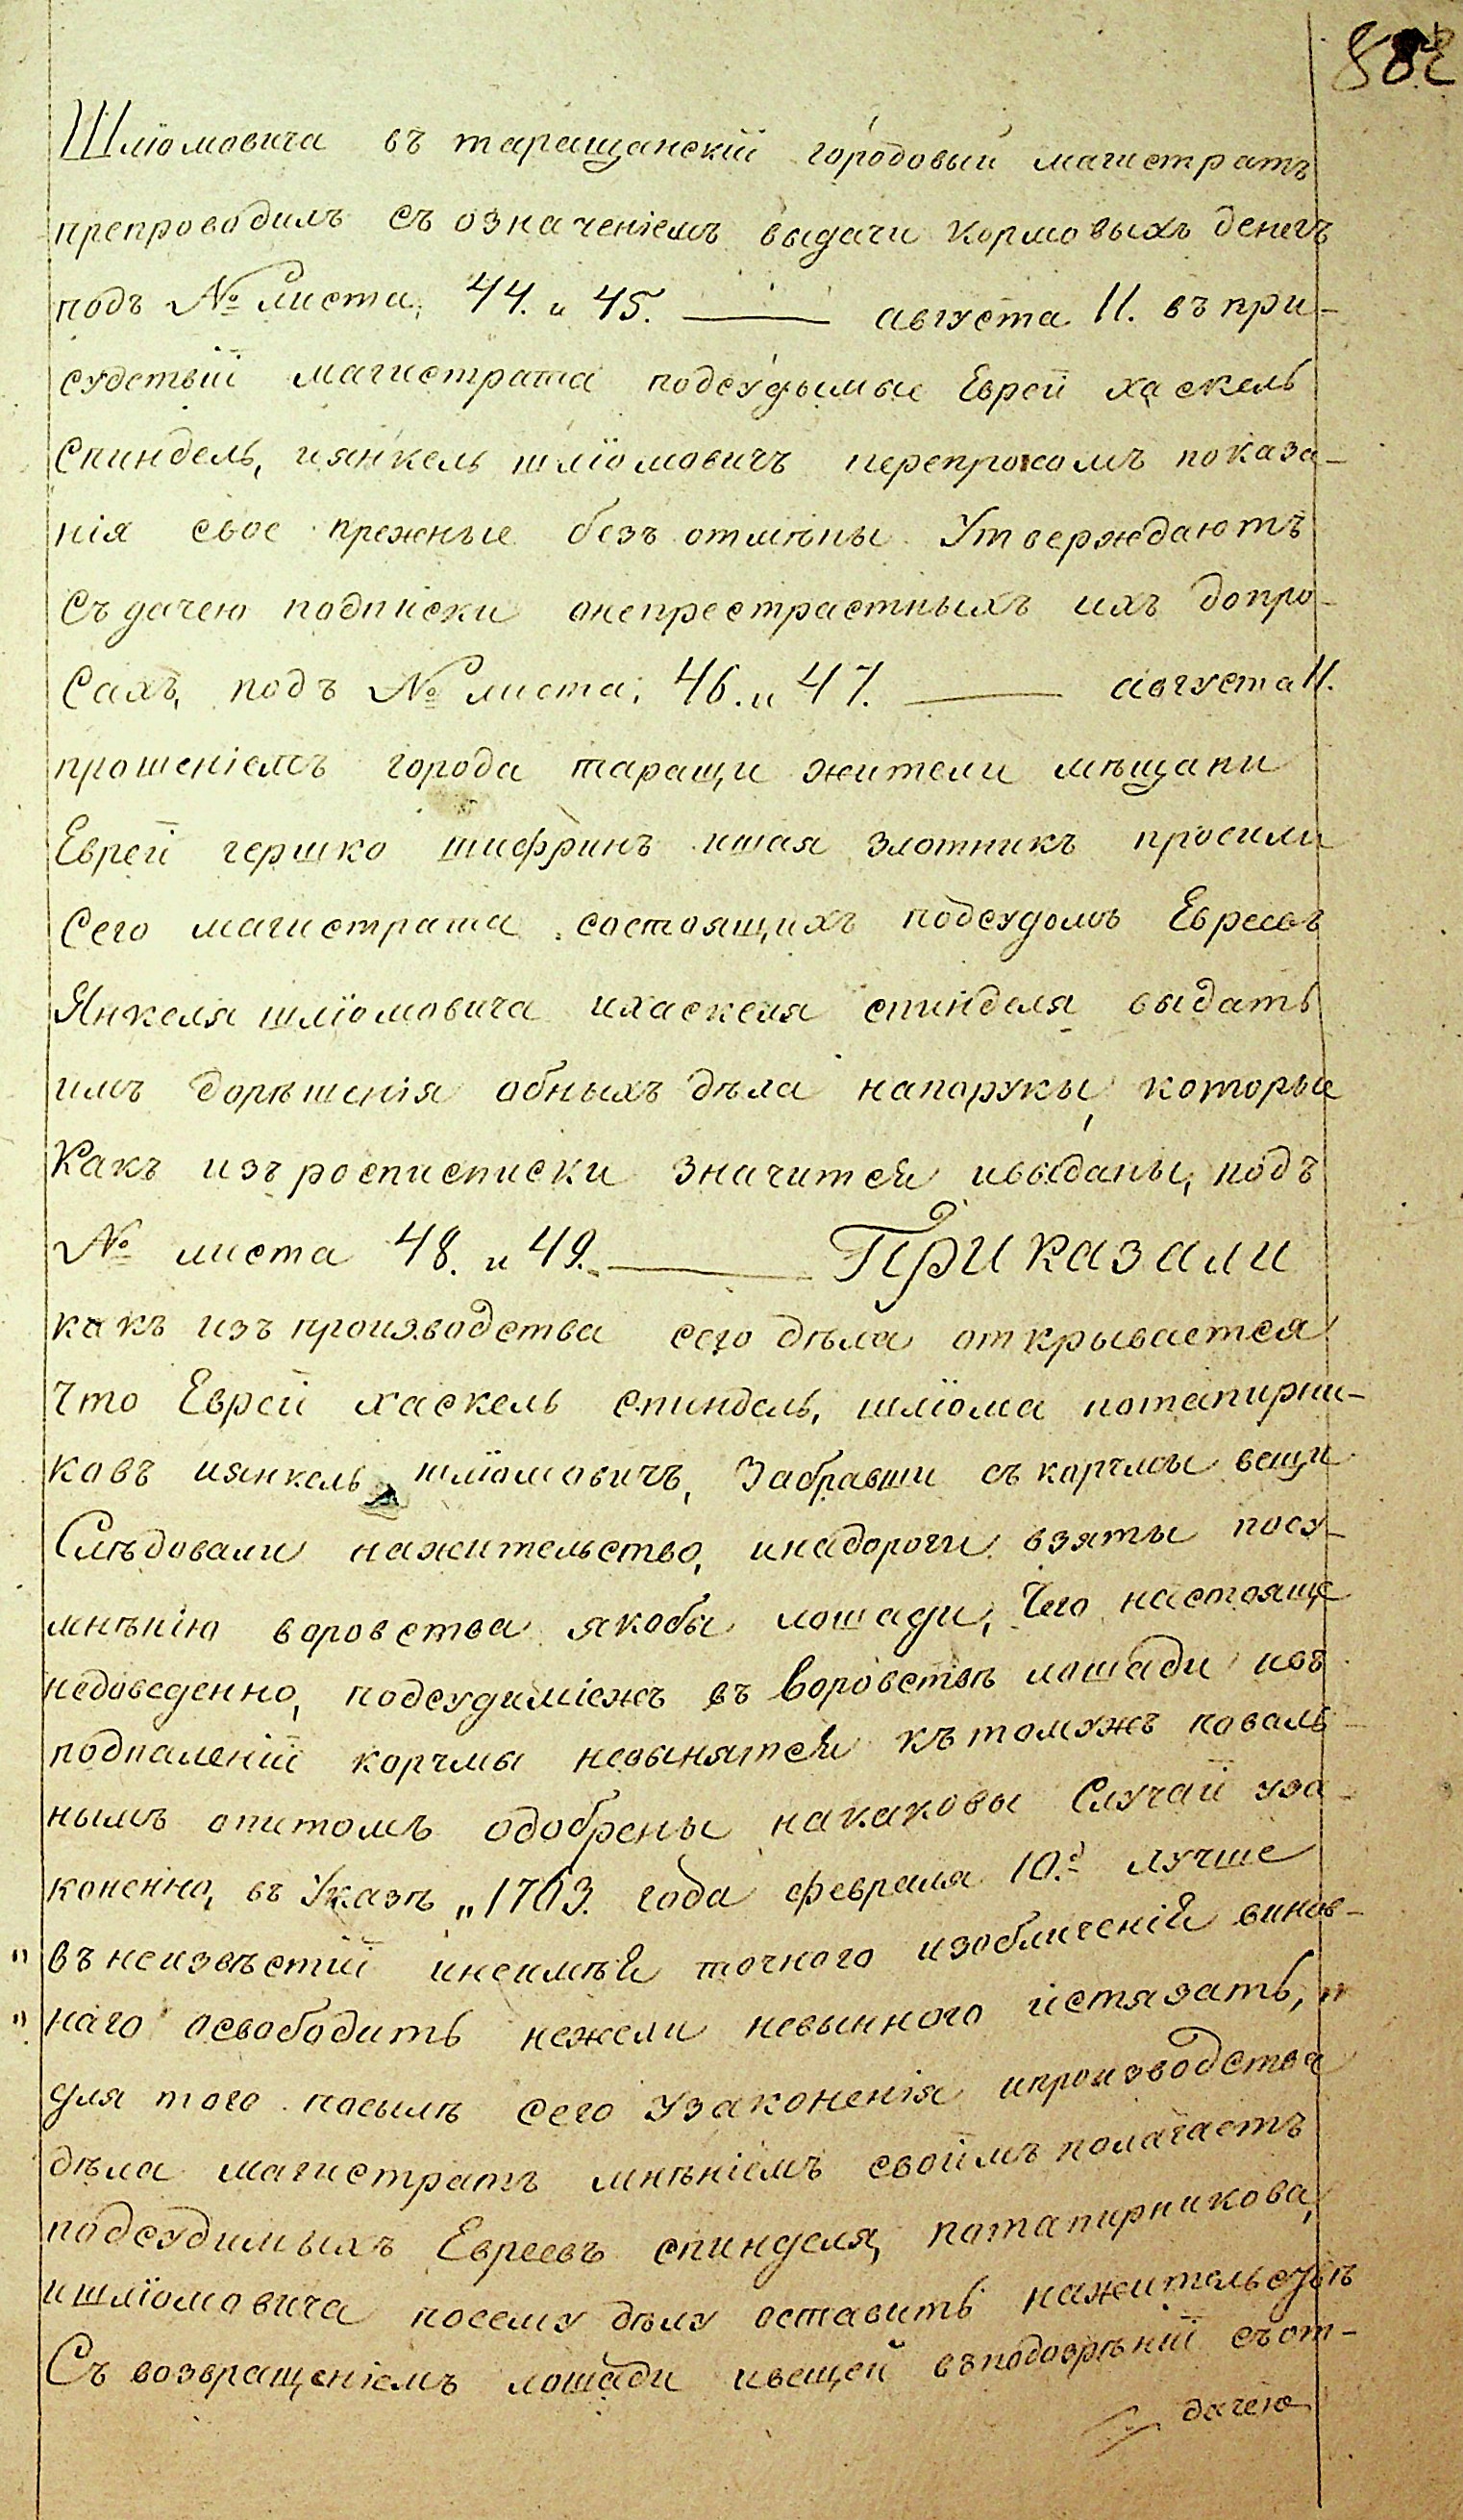 882
Шліомовича въ таращанскій городовый магистратъ
препроводилъ съ означеніемъ выдачи кормовыхъ денегъ
подъ № листа, 44. и 45. —— августа 11. въ при-
судствіи магистрата подсудымые Еврей хаскель
Спиндель, иянкель шліомовичъ перепросомъ показа-
нія свое прежные безъ отмѣны утверждаютъ
съ дачею подписки онепрестрастныхъ ихъ допро-
сахъ, подъ № листа, 46. и 47. —— августа 11.
прошеніемъ города таращи жители мѣщани
Еврей гершко шифринъ ишая злотникъ просили
Сего магистрата состоящихъ подсудомъ Евреевъ
Янкеля шліомовича ихаскеля спинделя выдать
имъ дорѣшенія обныхъ дѣла напоруки, которые
Какъ изъ росписписки значится ивыданы, подъ
№ листа 48. и 49. —— Приказали
какъ изъ производства сего дѣла открывается
Что Еврей хаскель спиндель, шліома потапирни-
ковъ иянкель шліомовичъ, Забравши съ корчмы вещи
Слѣдовали нажительство, инадороги взяты посу-
мнѣнію воровства якобы лошади, Чего настояще
недоведенно, подсудиміежъ въ воровствѣ лошади изъ
подпаленій корчмы невынятся къ томужъ поваль-
нымъ опитомъ одобрены накаковы Случай уза-
коненно, въ Указѣ „1763. года февраля 10.д лучше
" въ неизвѣстіи инеимѣя точного изобличенія винов-
" наго освободить нежели невынного истязать, "
для того посылѣ сего узаконенія ипроизводства
дѣла магистратъ мнѣніемъ своимъ полагаетъ
подсудимыхъ Евреевъ спинделя, потапирникова,
ишліомовича посему дѣлу оставить нажительствѣ
Съ возвращеніемъ лошади ивещей взподозрѣніи съот-
дачею